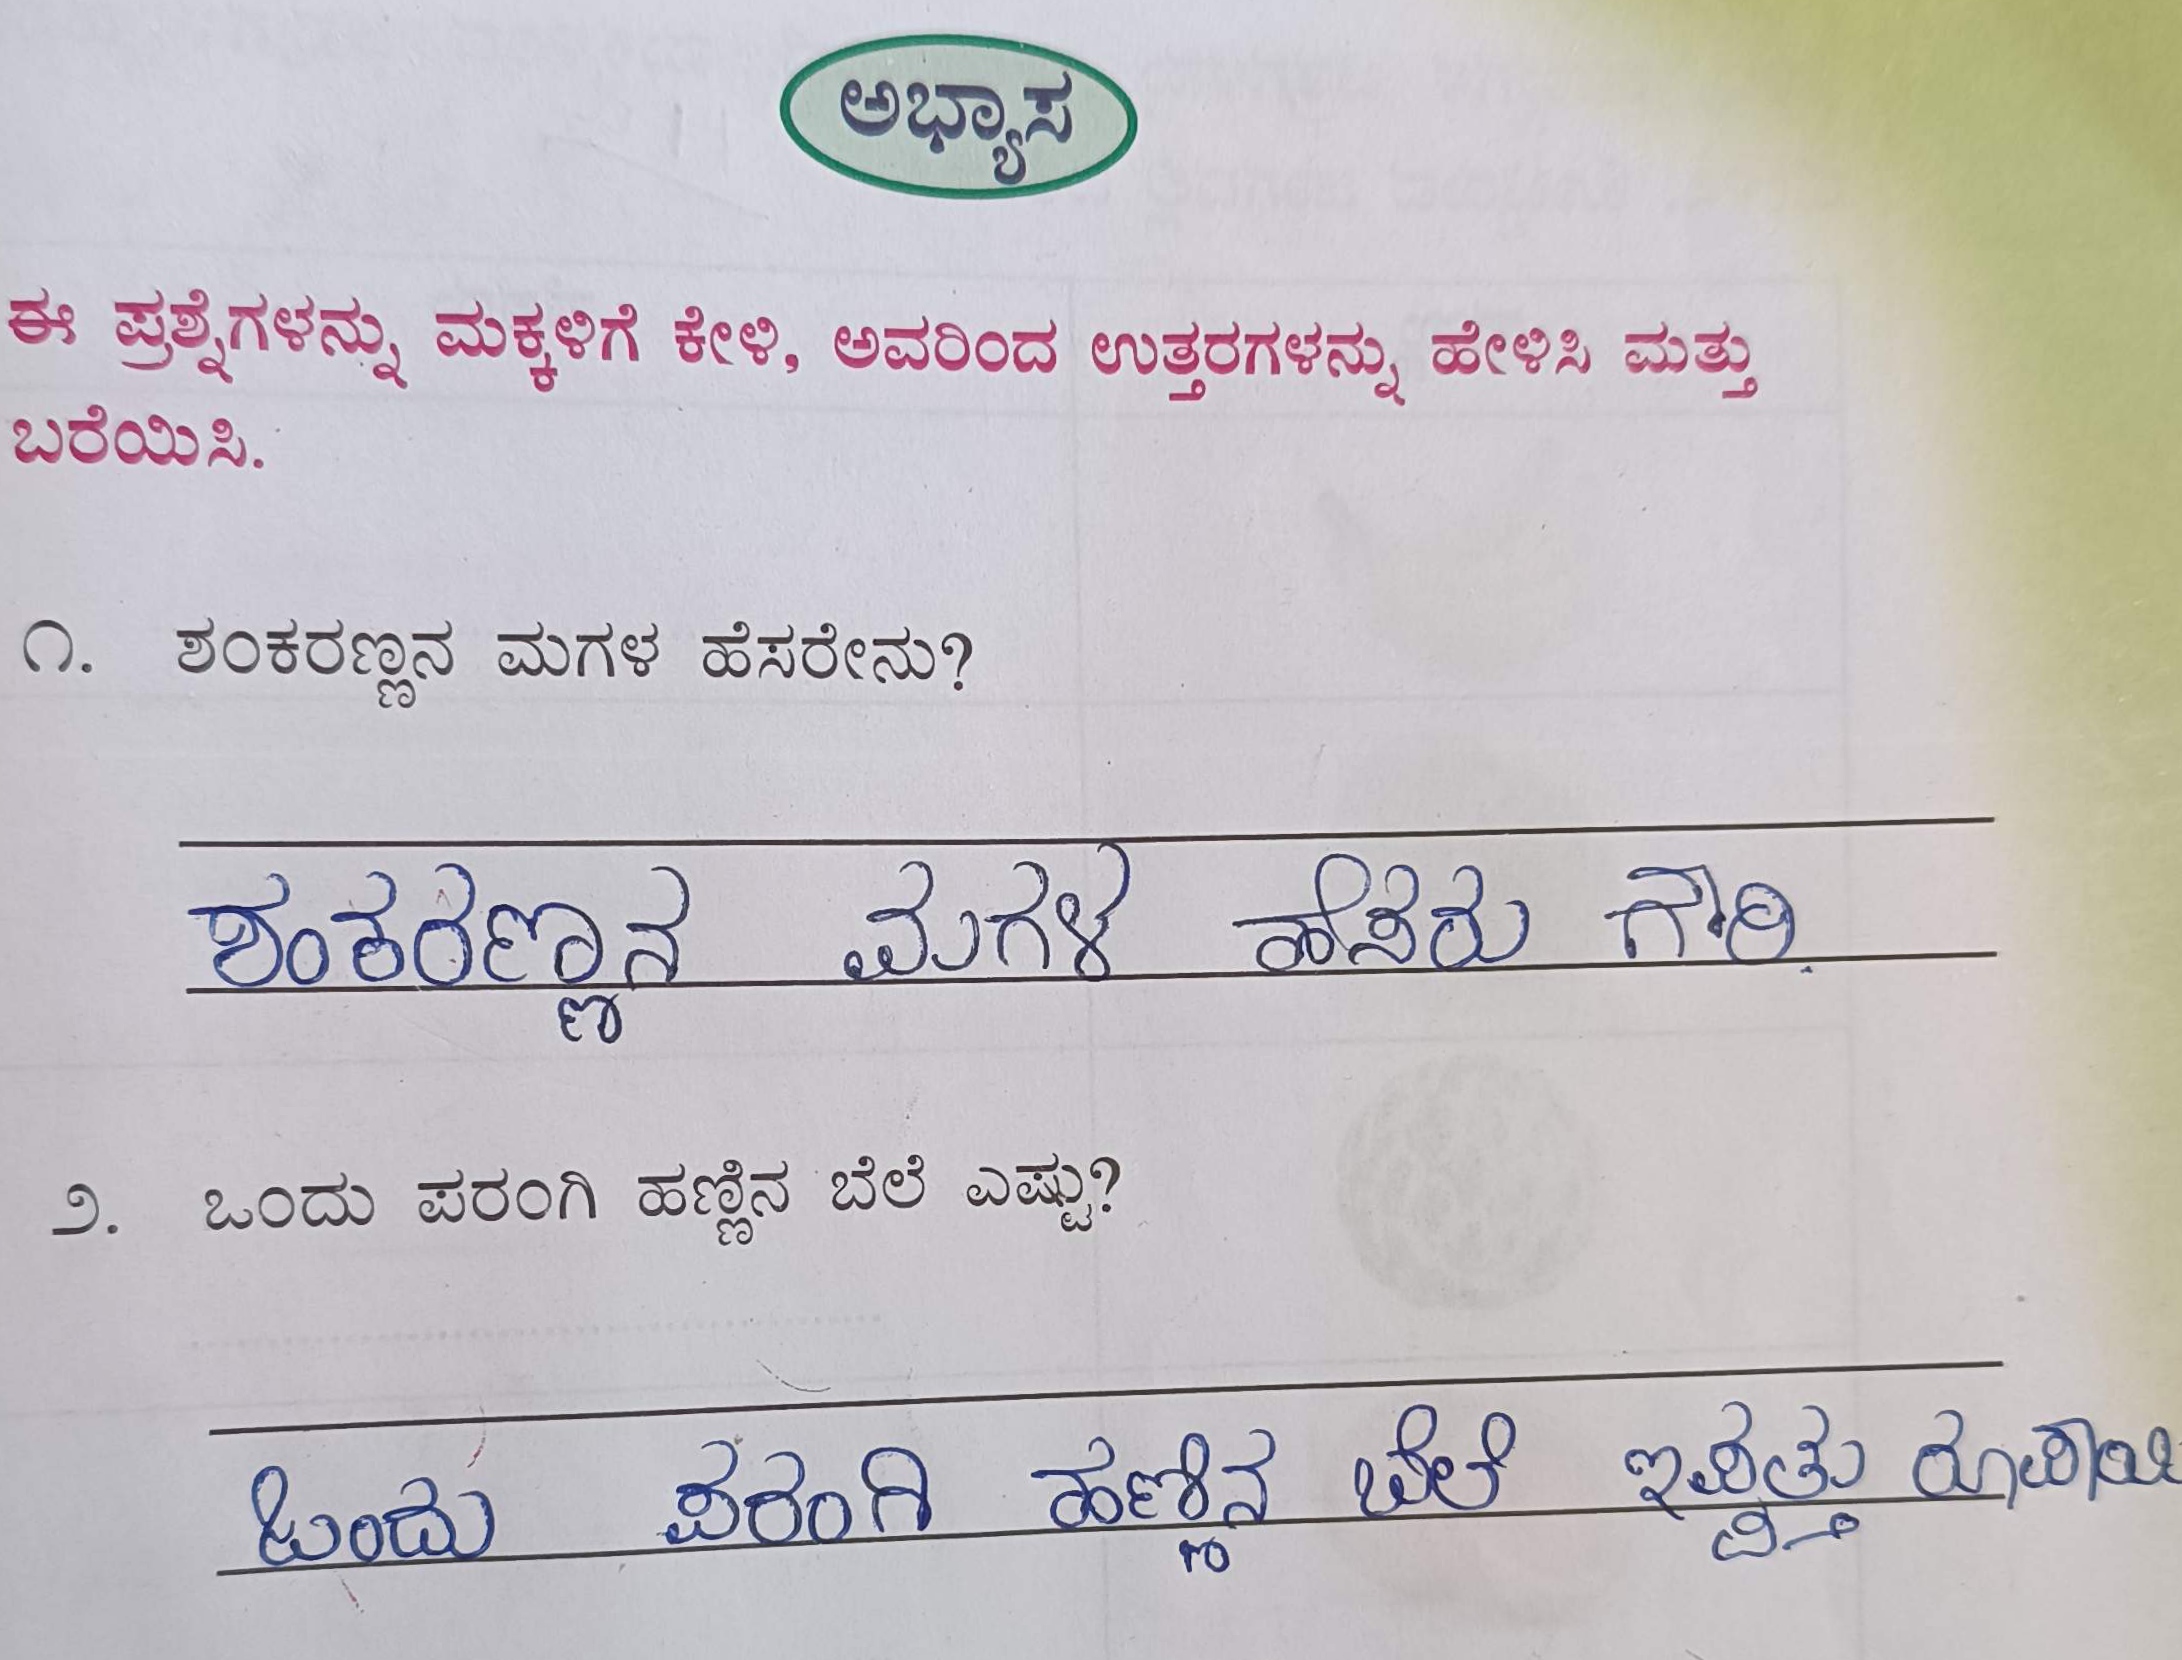 ಅಭ್ಯಾಸ
ಈ ಪ್ರಶ್ನೆಗಳನ್ನು ಮಕ್ಕಳಿಗೆ ಕೇಳಿ, ಅವರಿಂದ ಉತ್ತರಗಳನ್ನು ಹೇಳಿಸಿ ಮತ್ತು
ಬರೆಯಿಸಿ.
೧. ಶಂಕರಣ್ಣನ ಮಗಳ ಹೆಸರೇನು?
ಶಂಕರಣ್ಣನ ಮಗಳ ಹೆಸರು ಗೌರಿ.
೨. ಒಂದು ಪರಂಗಿ ಹಣ್ಣಿನ ಬೆಲೆ ಎಷ್ಟು?
ಒಂದು ಪರಂಗಿ ಹಣ್ಣಿನ ಬೆಲೆ ಇಪ್ಪತ್ತು ರೂಪಾಯಿ